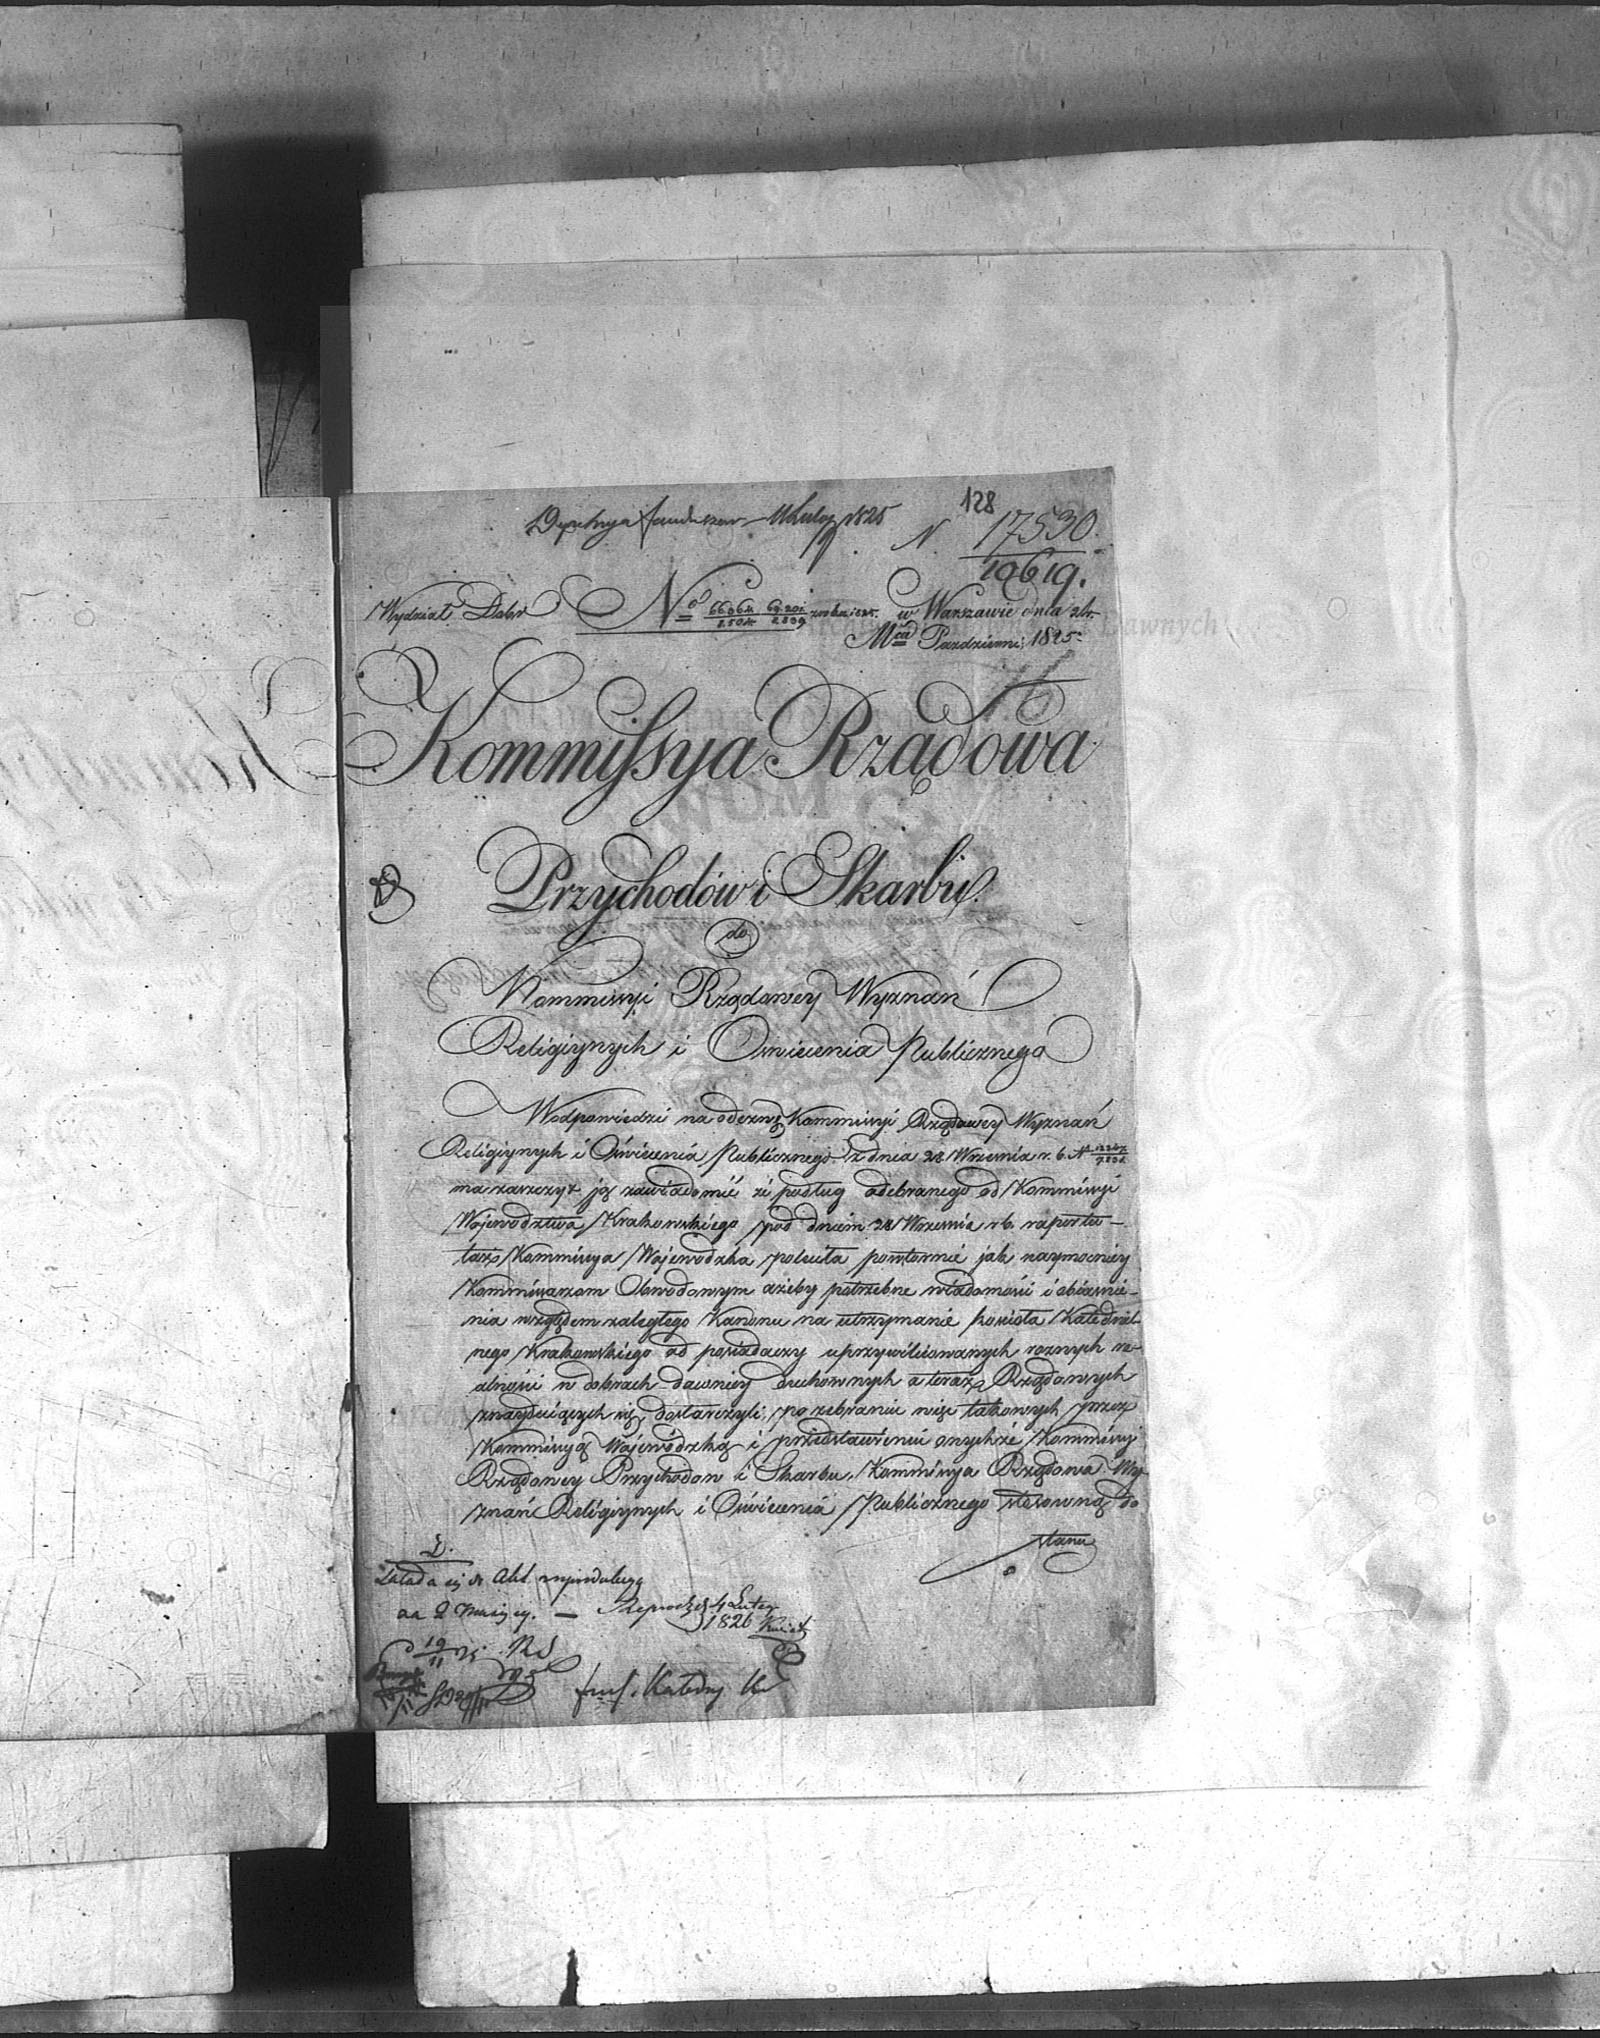 128
N. 17530.
10619.
Wydział Dóbr
No 66964 69201
w Warszawie dnia
Mca Pazdzierni: 1825.
Kommissya Rządowa
Przychodów i Skarbu.
do
Kommissyi Rządowey Wyznań
Religiynych i Oswiecenia Publicznego
W odpowiedzi na odezwę Kommissyi Rządowey Wyznań
Religiynych i Oświecenia Publicznego z dnia 28 Wrzesnia r. b. No
ma zaszczyt ją zawiadomić że podług odebranego od Kommissyi
Woiewodztwa Krakowskiego pod dniem 28 Wrzesnia r b. raportu
taż Kommissya Woiewodzka poleciła powtornie jak naymocniey
Kommissarzom Obwodowym ażeby potrzebne wiadomości i obiasnie-
nia względem zaległego Kanonu na utrzymanie koscioła Katedral-
nego Krakowskiego od posiadaczy uprzywileiowanych roznych re-
alności w dobrach dawniey duchownych a teraz Rządowych
znayduiących się dostarczyli, po zebraniu więc takowych przez
Kommissyą Woiewódzką i przedstawieniu onychże Kommissyi
Rządowey Przychodow i Skarbu, Kommissya Rządowa Wy-
znań Religiynych i Oświecenia Publicznego stosowną do
stanu
na 2 miesięcy. — 4 Lutego
1826
19
11